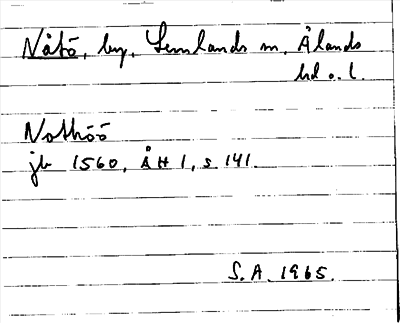 Nåtö, by, Lemlands sn, Ålands
hd o. l.
Nothöö
jb 1560, ÅH 1, s. 141.
S.A. 1965.